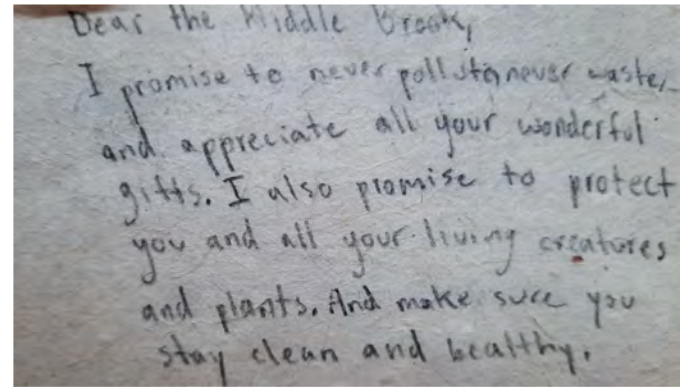 Dear the Middle Brook,
I promise to never pollute, never waste,
and appreciate all your wonderful
gifts. I also promise to protect
you and all your living creatures
and plants. And make sure you
stay clean and healthy.